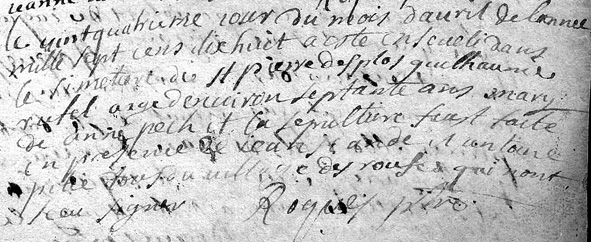 le vint quatrieme jour du mois d'avril de l'annee
mille sept cens dix huict a este enseueli dans
le simettiere de st pierre desplos guilhaume
ratel aage denuiron septante ans mary
de anne pech et la sepulture feust faite
en presence de Jean et antoine
du village de rouse qui nont
sceu signer Roques ptre